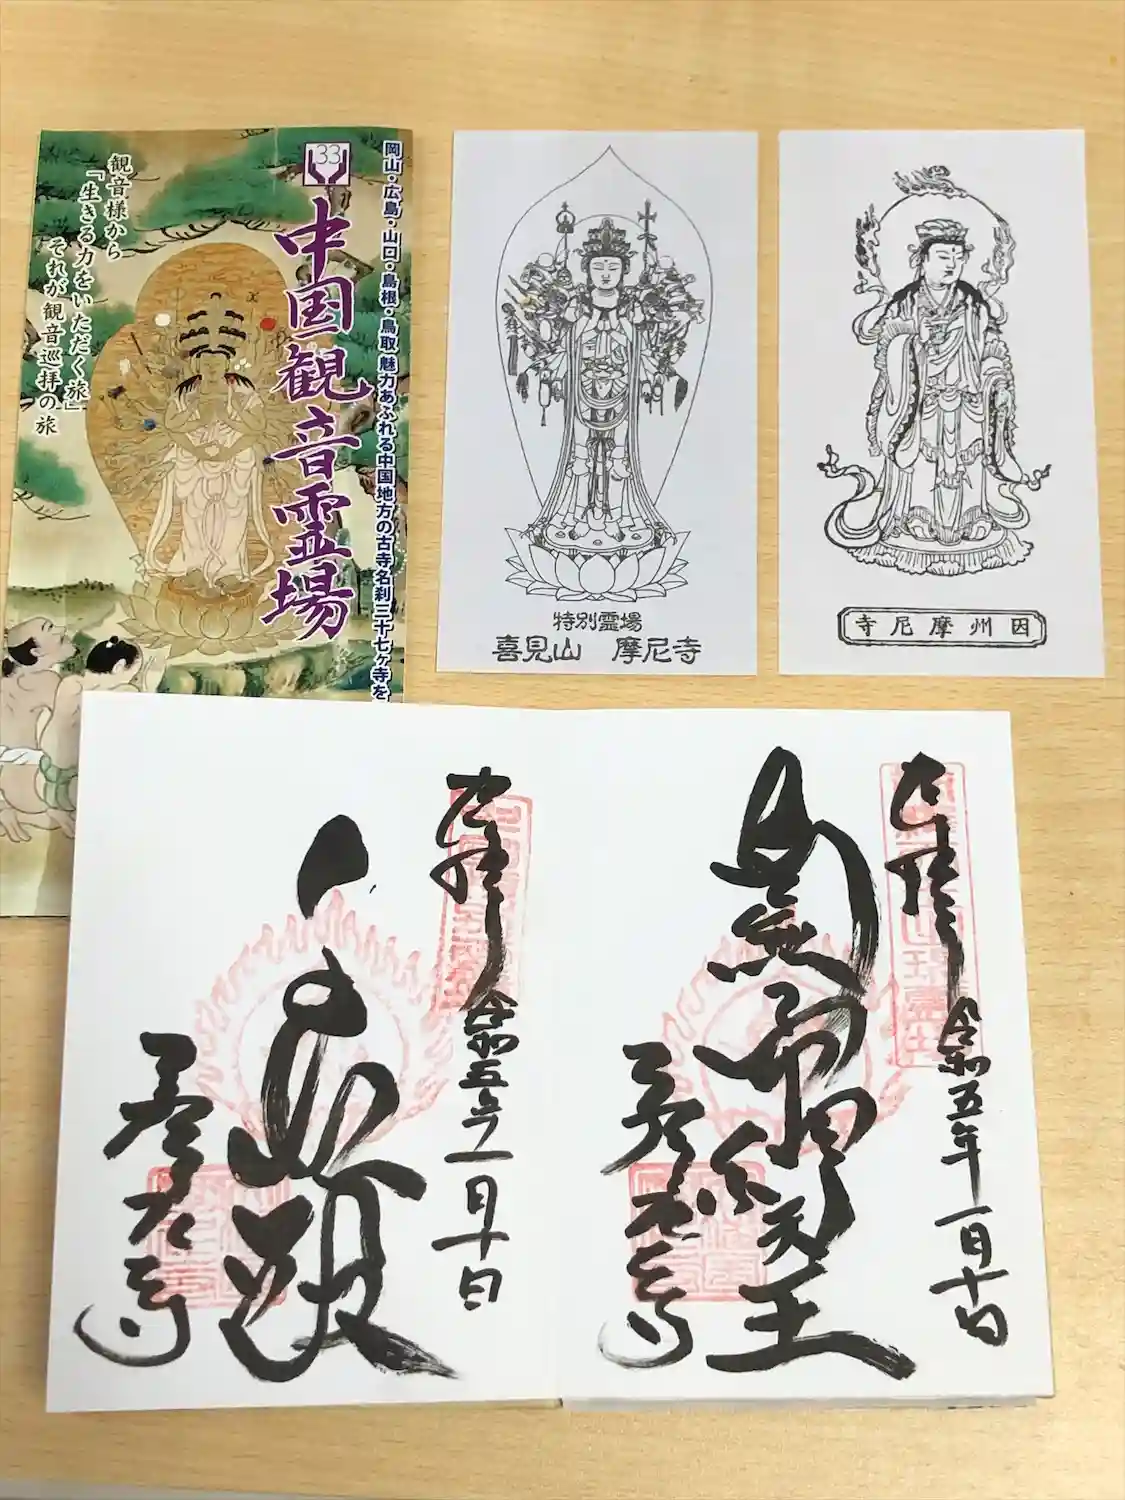 岡山・広島・山口・島根・鳥取 魅力あふれる中国地方の古寺名刹三十七ヶ寺を
33
中国観音霊場
観音様から
「生きる力をいただく旅」
それが観音巡拝の旅
特別霊場
喜見山 摩尼寺
因州摩尼寺
奉拝
令和五年一月十日
南無帝釈天王
摩尼寺
奉拝
令和五年一月十日
摩尼寺